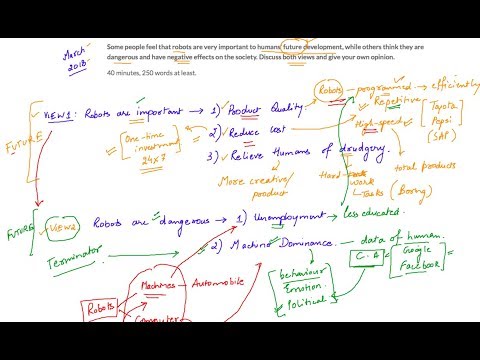 March 2018
Some people feel that robots are very important to humans future development, while others think they are
dangerous and have negative effects on the society. Discuss both views and give your own opinion.
40 minutes, 250 words at least.
Robots → programmed → efficiently
Repetitive
High-speed
[Toyota
Pepsi
(SAP)
FUTURE
VIEW1: Robots are important → 1) Product Quality
[One-time
investment
24x7
2) Reduce Cost
3) Relieve Humans of drudgery.
More creative/
product
Hard-work
Tasks (Boring)
total products
FUTURE
VIEW2
Robots are dangerous → 1) Unemployment → less educated.
Terminator
2) Machine Dominance — data of human.
C.A
Google
Facebook
behaviour
Emotion
Political
Robots
Machines — Automobile
Computer